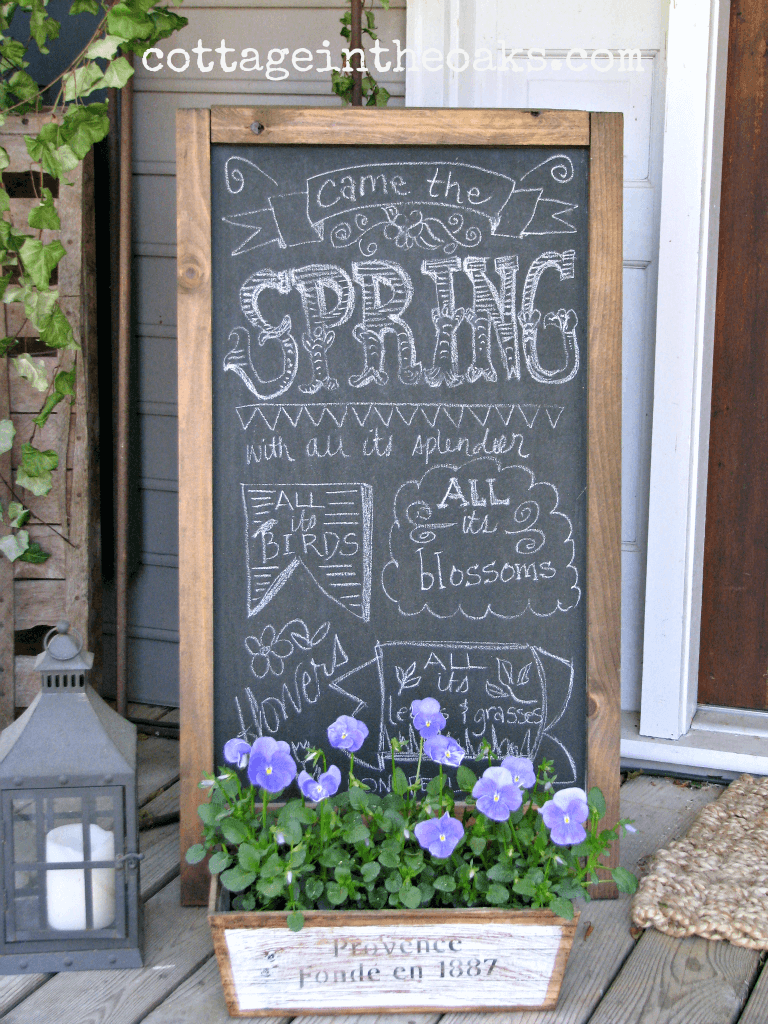 cottageintheoaks.com
came the
SPRING
with all its splendor
ALL
its
BIRDS
ALL
its
blossoms
flowers
ALL
its
& grasses
Provence
Fondé en 1887